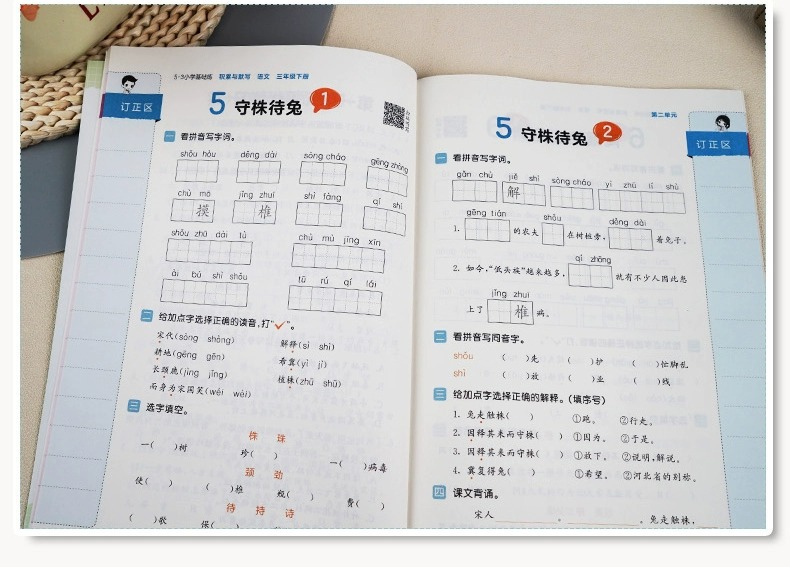 5·3小学基础练 积累与默写 语文 三年级下册
订正区
5 守株待兔 1
一 看拼音写字词。
shǒu hòu děng dài sòng cháo gēng zhòng
chù mō jǐng zhuī shì fàng qí shí
摸 椎
shǒu zhū dài tù chù mù jīng xīn
ài bú shì shǒu tū rú qí lái
二 给加点字选择正确的读音,打“✓”。
宋代(sòng shòng) 解释(sì shì)
耕地(gēng gēn) 希冀(yì jì)
长颈鹿(jǐng jīng) 植株(zhū shū)
而身为宋国笑(wéi wèi)
三 选字填空。
株 珠
一( )树 珍( ) 一( )病毒
颈 劲
使( ) ( )椎 瓶( ) 费( )
待 持 诗
( )歌 保(
第二单元
订正区
5 守株待兔 2
一 看拼音写字词。
gǎn chù jiě shì sòng cháo yì zhū lí shù
解
gēng tián shǒu děng dài
1. 的农夫 在树桩旁, 着兔子。
qí zhōng
2. 如今,“低头族”越来越多, 就有不少人因此患
jǐng zhuī
上了 椎 病。
二 看拼音写同音字。
shǒu ( )先 ( )护 ( )忙脚乱
shì ( )放 ( )业 ( )线
三 给加点字选择正确的解释。(填序号)
1. 兔走触株( ) ①跑。 ②行走。
2. 因释其耒而守株( ) ①因为。 ②于是。
3. 因释其耒而守株( ) ①放下。 ②说明,解说。
4. 冀复得兔( ) ①希望。 ②河北省的别称。
四 课文背诵。
宋人 。 。兔走触株,